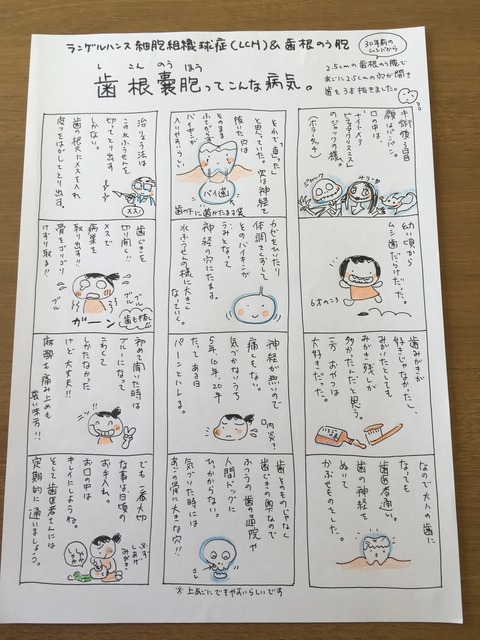 ランゲルハンス細胞組織球症(LCH)&歯根のう胞
30年前の
ムシバから
し こん のう ほう
歯根嚢胞ってこんな病気。
2.5cmの歯根のう腫で
あごに2.5cmの穴が開き
歯を3本抜きました。
手術後3日目
顔はパンパン。
口の中は
ナイトメアー
ビフォアクリスマス
のジャックの様。
(ホラータッチ)
ジャック
サリー
幼い頃から
ムシ歯だらけだった。
6才のころ
歯みがきが
好きじゃなかったし、
みがいたとしても
みがき残しが
多かったんだと思う。
一方、おやつは
大好きだった。
なので大人の歯に
なっても
歯医者通い。
歯の神経を
ぬいて
かぶせものをした。
それで“直った”
と思っていた。実は神経を
抜いた穴は
ふてがらで
そのまま
バイキンが
入りやすいらしい
バイ菌
歯の下に菌がたまる袋
カゼをひいたり
体調をくずして
そのバイキンが
うみとなって
神経の穴にたまる。
水ふうせんの様に大きく
なっていく。
神経が無いので
痛しもない。
気づかないうち
5年、10年、20年
たって ある日
パーンとハレる。
口内炎?
歯そのものじゃなく
歯ぐきの奥なので
ふつうの歯の通院や
人間ドッグに
ひっかからない。
気づいた時には
あごの骨に大きな穴!!
※上あごにできやすいらしいです
治りょう法は
この水ふうせんを
切ってとり出す
しかない。
歯の根元にメスを入れ
皮フをはがしてとり出す。
メス!
歯ぐきを
切り開く!!
メスで
病巣を
取り出す!!
骨をゴリゴリ
けずり取る!!
ブルブル
ガーン
歯も抜く
初めて聞いた時は
ブルーになって
こわくて
しかたなかった
けど大丈夫!!
麻酔も痛み止めも
強い味方!!
でも一番大切
な事は日頃の
お手入れ。
お口の中は
キレイにしようね。
そして歯医者さんには
定期的に通いましょう。
必ず
しあげ
みがき